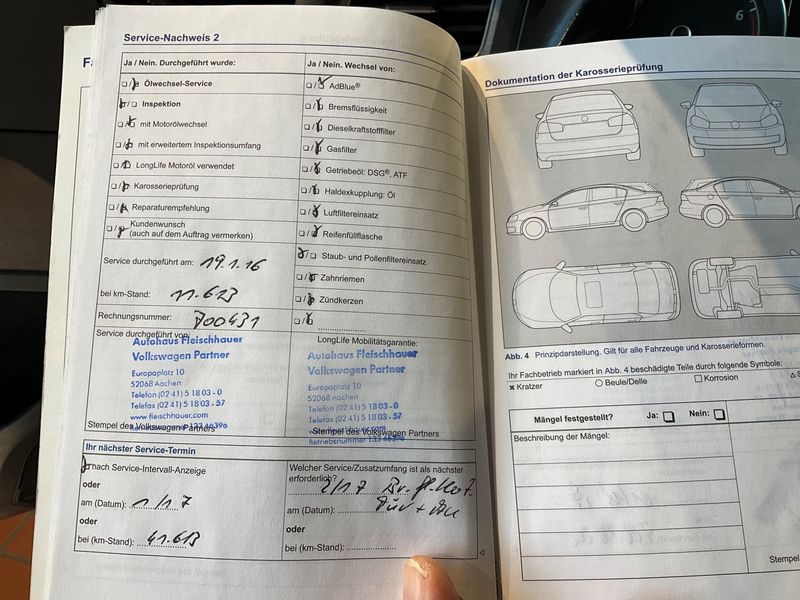 6
Service-Nachweis 2
Ja / Nein. Durchgeführt wurde:
Ölwechsel-Service
Inspektion
mit Motorölwechsel
mit erweitertem Inspektionsumfang
LongLife Motoröl verwendet
Karosserieprüfung
Reparaturempfehlung
Kundenwunsch
(auch auf dem Auftrag vermerken)
Service durchgeführt am: 19.1.16
bei km-Stand: 11.613
Rechnungsnummer: 700431
Service durchgeführt von:
Autohaus Fleischhauer
Volkswagen Partner
Europaplatz 10
52068 Aachen
Telefon (02 41) 5 18 03 - 0
Telefax (02 41) 5 18 03 - 57
www.fleischhauer.com
Stempel des Volkswagen Partners
Ja / Nein. Wechsel von:
AdBlue®
Bremsflüssigkeit
Dieselkraftstofffilter
Gasfilter
Getriebeöl: DSG®, ATF
Haldexkupplung: Öl
Luftfiltereinsatz
Reifenfüllflasche
Staub- und Pollenfiltereinsatz
Zahnriemen
Zündkerzen
LongLife Mobilitätsgarantie:
Autohaus Fleischhauer
Volkswagen Partner
Europaplatz 10
52068 Aachen
Telefon (02 41) 5 18 03 - 0
Telefax (02 41) 5 18 03 - 57
www.fleischhauer.com
Stempel des Volkswagen Partners
Betriebsnummer 133
Ihr nächster Service-Termin
nach Service-Intervall-Anzeige
oder
am (Datum): 1/17
oder
bei (km-Stand): 41.613
Welcher Service/Zusatzumfang ist als nächster
erforderlich? 2/17
am (Datum):
oder
bei (km-Stand):
Dokumentation der Karosserieprüfung
Abb. 4 Prinzipdarstellung. Gilt für alle Fahrzeuge und Karosserieformen.
Ihr Fachbetrieb markiert in Abb. 4 beschädigte Teile durch folgende Symbole:
× Kratzer ○ Beule/Delle □ Korrosion △ S
Mängel festgestellt? Ja: Nein:
Beschreibung der Mängel:
Stempel